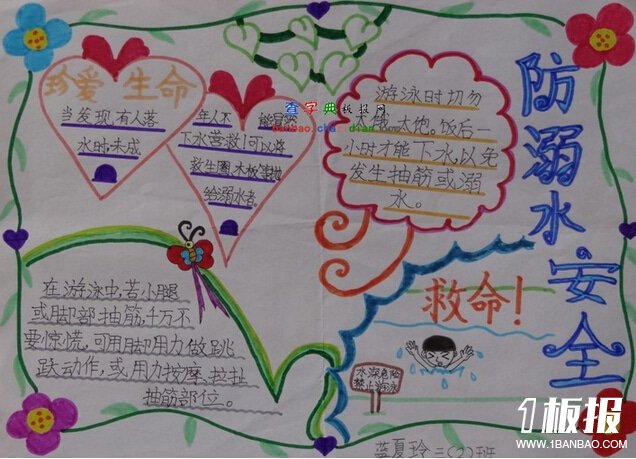 防溺水安全
珍爱生命
当发现有人落
水时,未成
年人不能冒然
下水营救!可以将
救生圈,木板等抛
给溺水者。
查字典板报网
banbao.chazidian.com
游泳时切勿
太饿、太饱。饭后一
小时才能下水,以免
发生抽筋或溺
水。
在游泳中,若小腿
或脚部抽筋,千万不
要惊慌,可用脚用力做跳
跃动作,或用力按摩、拉扯
抽筋部位。
救命!
水深危险
禁止游泳
蓝夏玲三(2)班
1板报
WWW.1BANBAO.COM